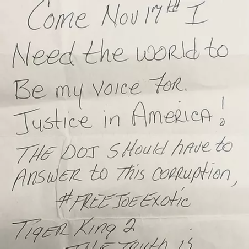 Come Nov 17th I
Need the world to
Be my voice for
Justice in America!
THE DOJ SHould have to
ANSWER to THis CORRUPTION,
#FREEJOEEXOTIC
TIGER KING 2
THE TRUTH IS